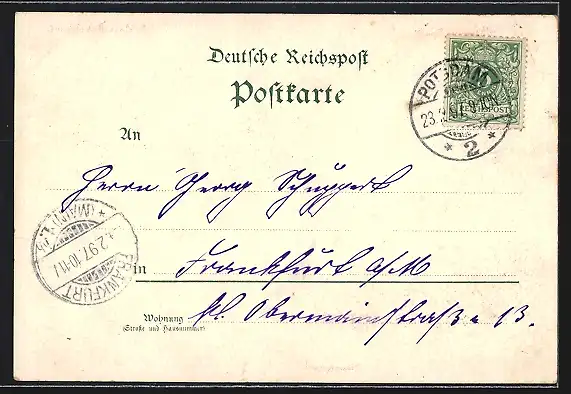 Deutsche Reichspost
Postkarte
POTSDAM
23.2.97. 9-10N
* 2 *
REICHSPOST
An
Herrn Georg Schuppert
in Frankfurt a/M
FRANKFURT (MAIN)
.2.97. 10-11
Wohnung kl. Obermainstraße 13.
(Straße und Hausnummer)